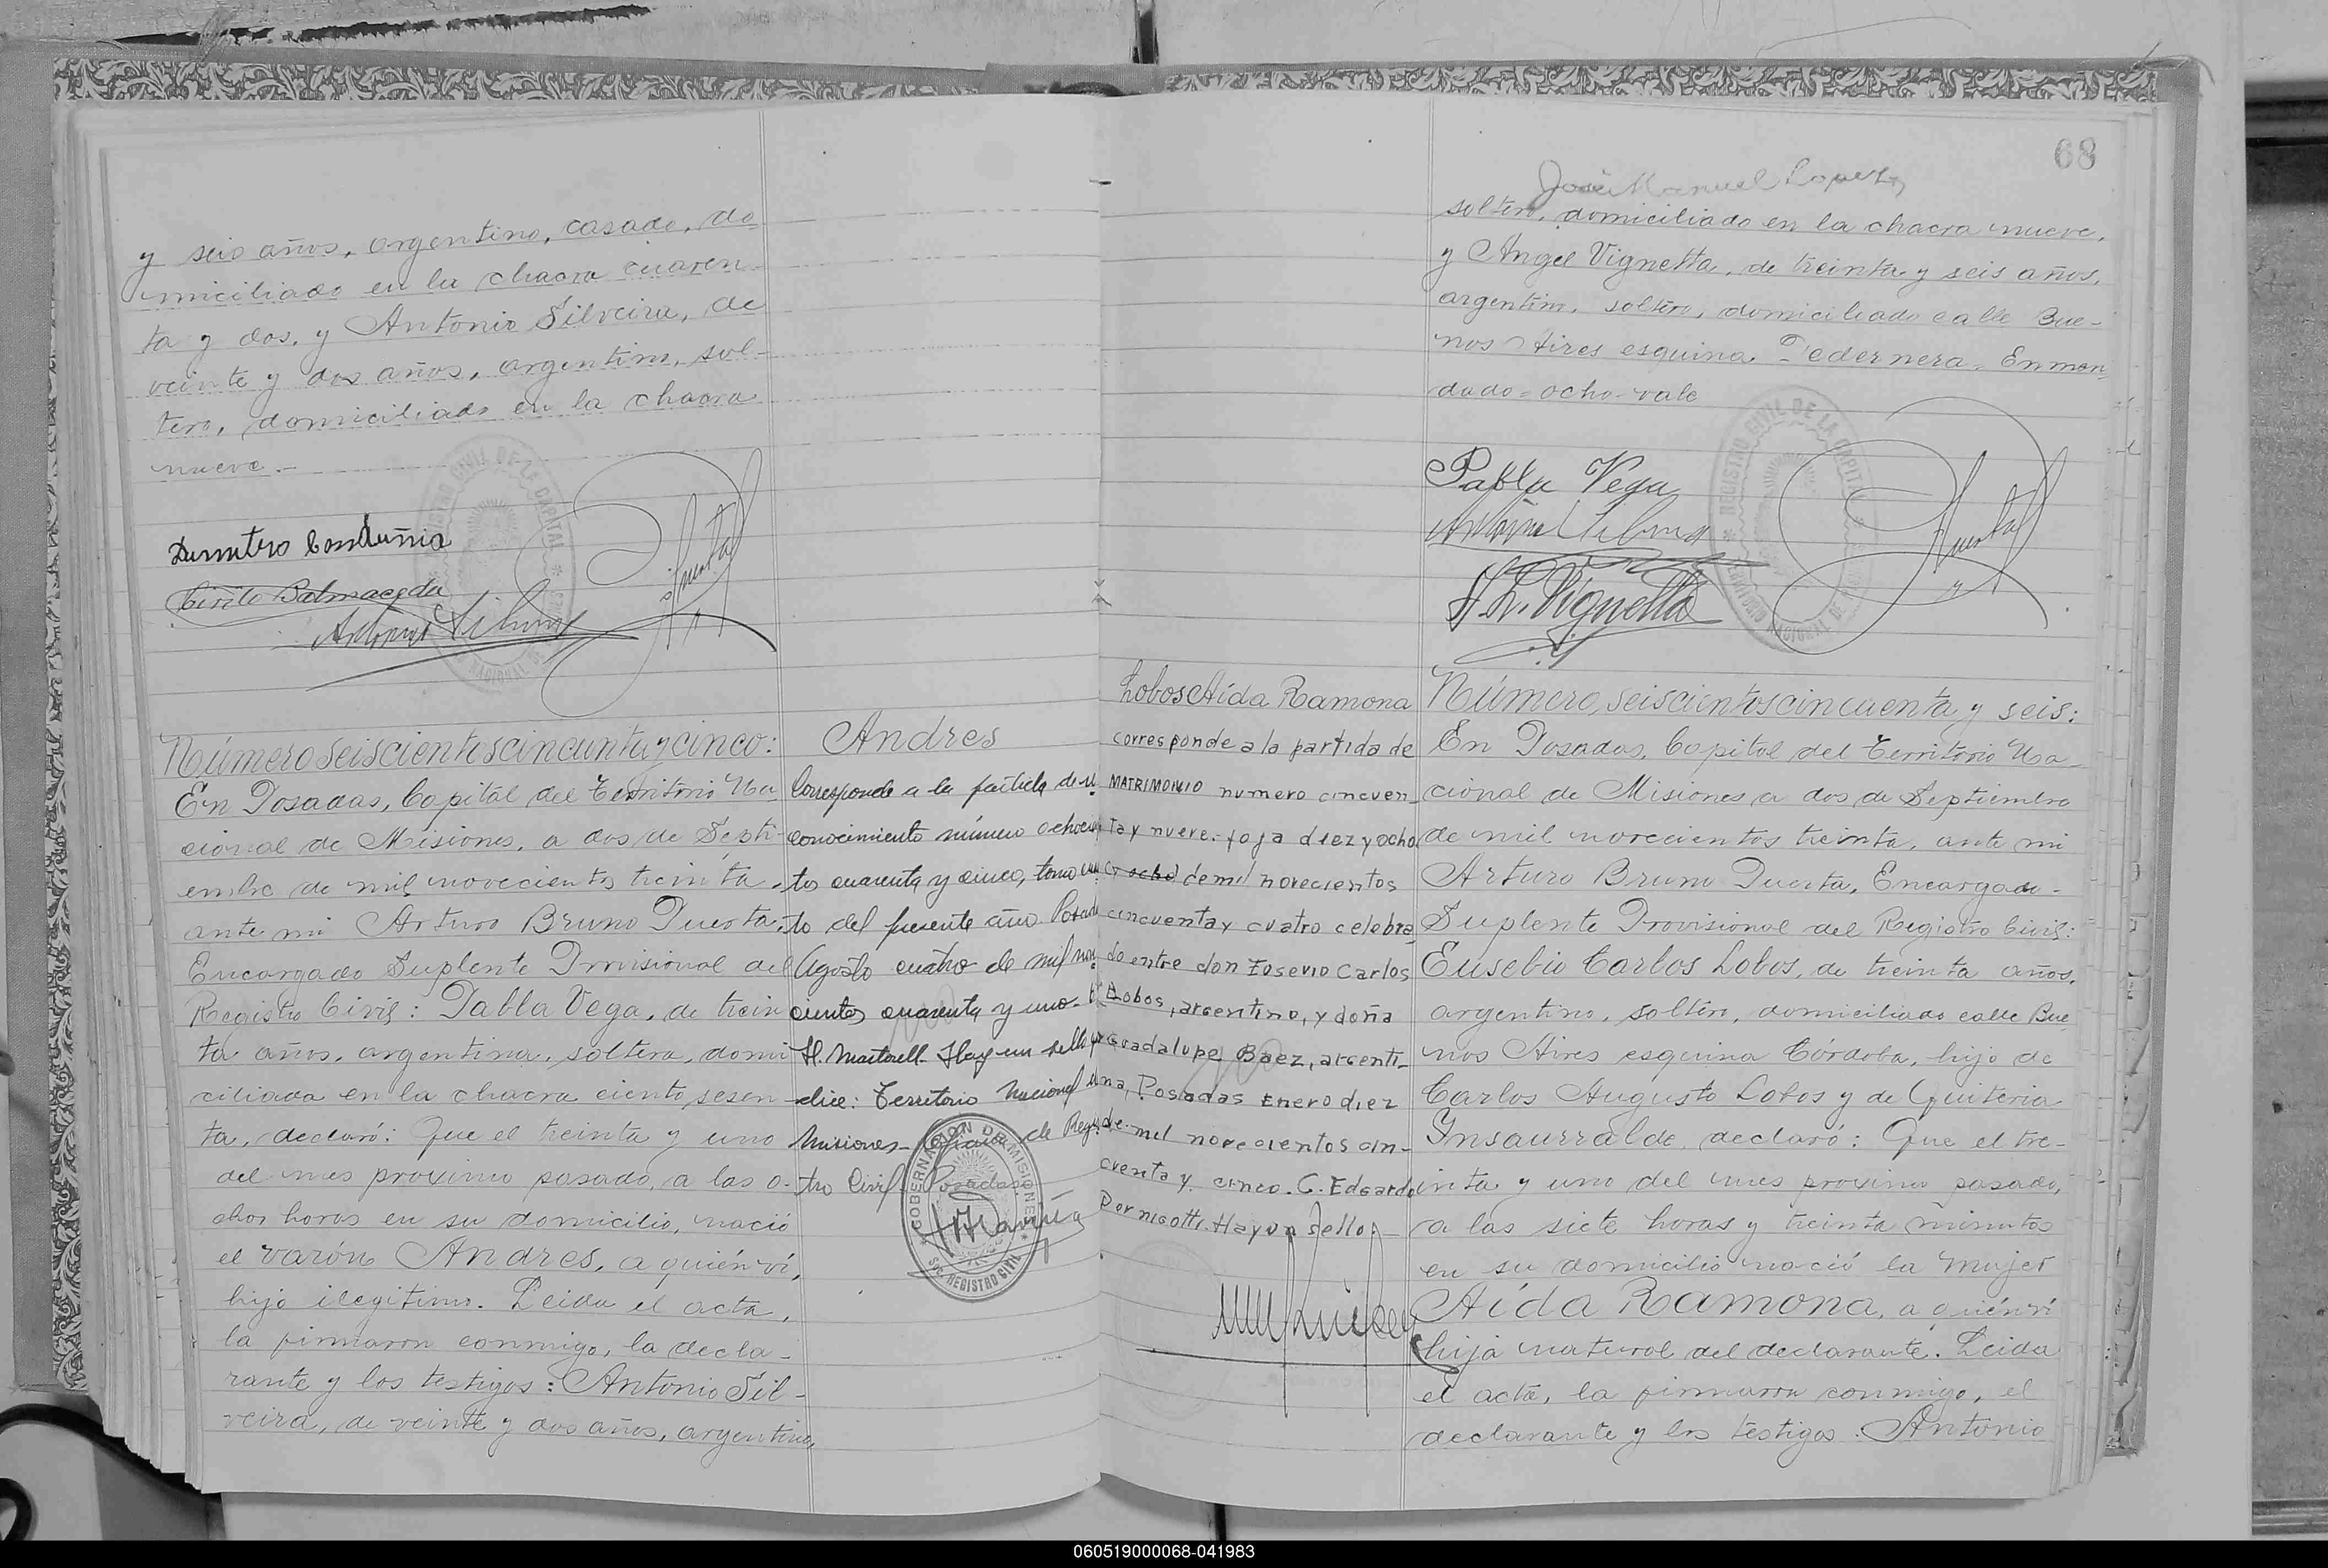 y seis años, argentino, casado, do-
miciliado en la chacra cuaren-
ta y dos, y Antonio Silveira, de
veinte y dos años, argentino, sol-
tero, domiciliado en la chacra
nueve.-
Cirilo Balmaceda
Antonio Silveira
Número seiscientos cincuenta y cinco:
En Posadas, Capital del Territorio Na-
cional de Misiones, a dos de Septi-
embre de mil novecientos treinta,
ante mi Arturo Bruno Puerta,
Encargado Suplente Provisional del
Registro Civil: Pabla Vega, de trein
ta años, argentina, soltera, domi
ciliada en la chacra ciento sesen-
ta, declaró: Que el treinta y uno
del mes proximo pasado, a las o-
chos horas en su domicilio, nació
el varón Andres, a quién ví,
hijo ilegitimo. Leida el acta,
la firmaron conmigo, la decla-
rante y los testigos: Antonio Sil-
veira, de veinte y dos años, argentino,
Andres
Corresponde a la partida de re
conocimiento número ochocien
tos cuarenta y cinco, tomo
to del presente año. Posadas
Agosto cuatro de mil nove
cientos cuarenta y uno-
H. Martorell. Hay un sello que
dice: Territorio Nacional de
Misiones- de Regis
tro Civil- Posadas.
GOBERNACION DE MISIONES
REGISTRO CIVIL
68
José Manuel Lopez
soltero, domiciliado en la chacra nueve,
y Angel Vignetta, de treinta y seis años,
argentino, soltero, domiciliado calle Bue-
nos Aires esquina Pedernera. Enmen
dado=ocho-vale
REGISTRO CIVIL DE LA CAPITAL
Pabla Vega
Antonio Silveira
Vignetta
Puerta
Lobos Aída Ramona
corresponde a la partida de
MATRIMONIO numero cincuen-
ta y nueve. foja diez y ocho
de mil novecientos
cincuenta y cuatro celebra
do entre don Eusevio Carlos
Lobos, argentino, y doña
Guadalupe Baez, argenti-
na, Posadas Enero diez
de mil novecientos cin-
cuenta y cinco. C. Edgardo
Pernigotti. Hay un sello.-
Número seiscientos cincuenta y seis:
En Posadas, Capital del Territorio Na
cional de Misiones a dos de Septiembre
de mil novecientos treinta, ante mi
Arturo Bruno Puerta, Encargado-
Suplente Provisional del Registro Civil:
Eusebio Carlos Lobos, de treinta años,
argentino, soltero, domiciliado calle Bue
nos Aires esquina Córdoba, hijo de
Carlos Augusto Lobos y de Quiteria
Insaurralde, declaró: Que el tre-
inta y uno del mes proximo pasado,
a las siete horas y treinta minutos
en su domicilio nació la mujer
Aída Ramona, a quién ví
hija natural del declarante. Leida
el acta, la firmaron conmigo, el
declarante y los testigos: Antonio
060519000068-041983